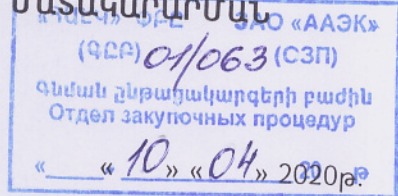 ՄԱՏԱԿԱՐԱՐՄԱՆ
«ՀԱԷԿ» ՓԲԸ ЗАО «ААЭК»
(ԳԸԲ) 01/063 (СЗП)
Գնման ընթացակարգերի բաժին
Отдел закупочных процедур
« 10 » « 04 » 2020թ.